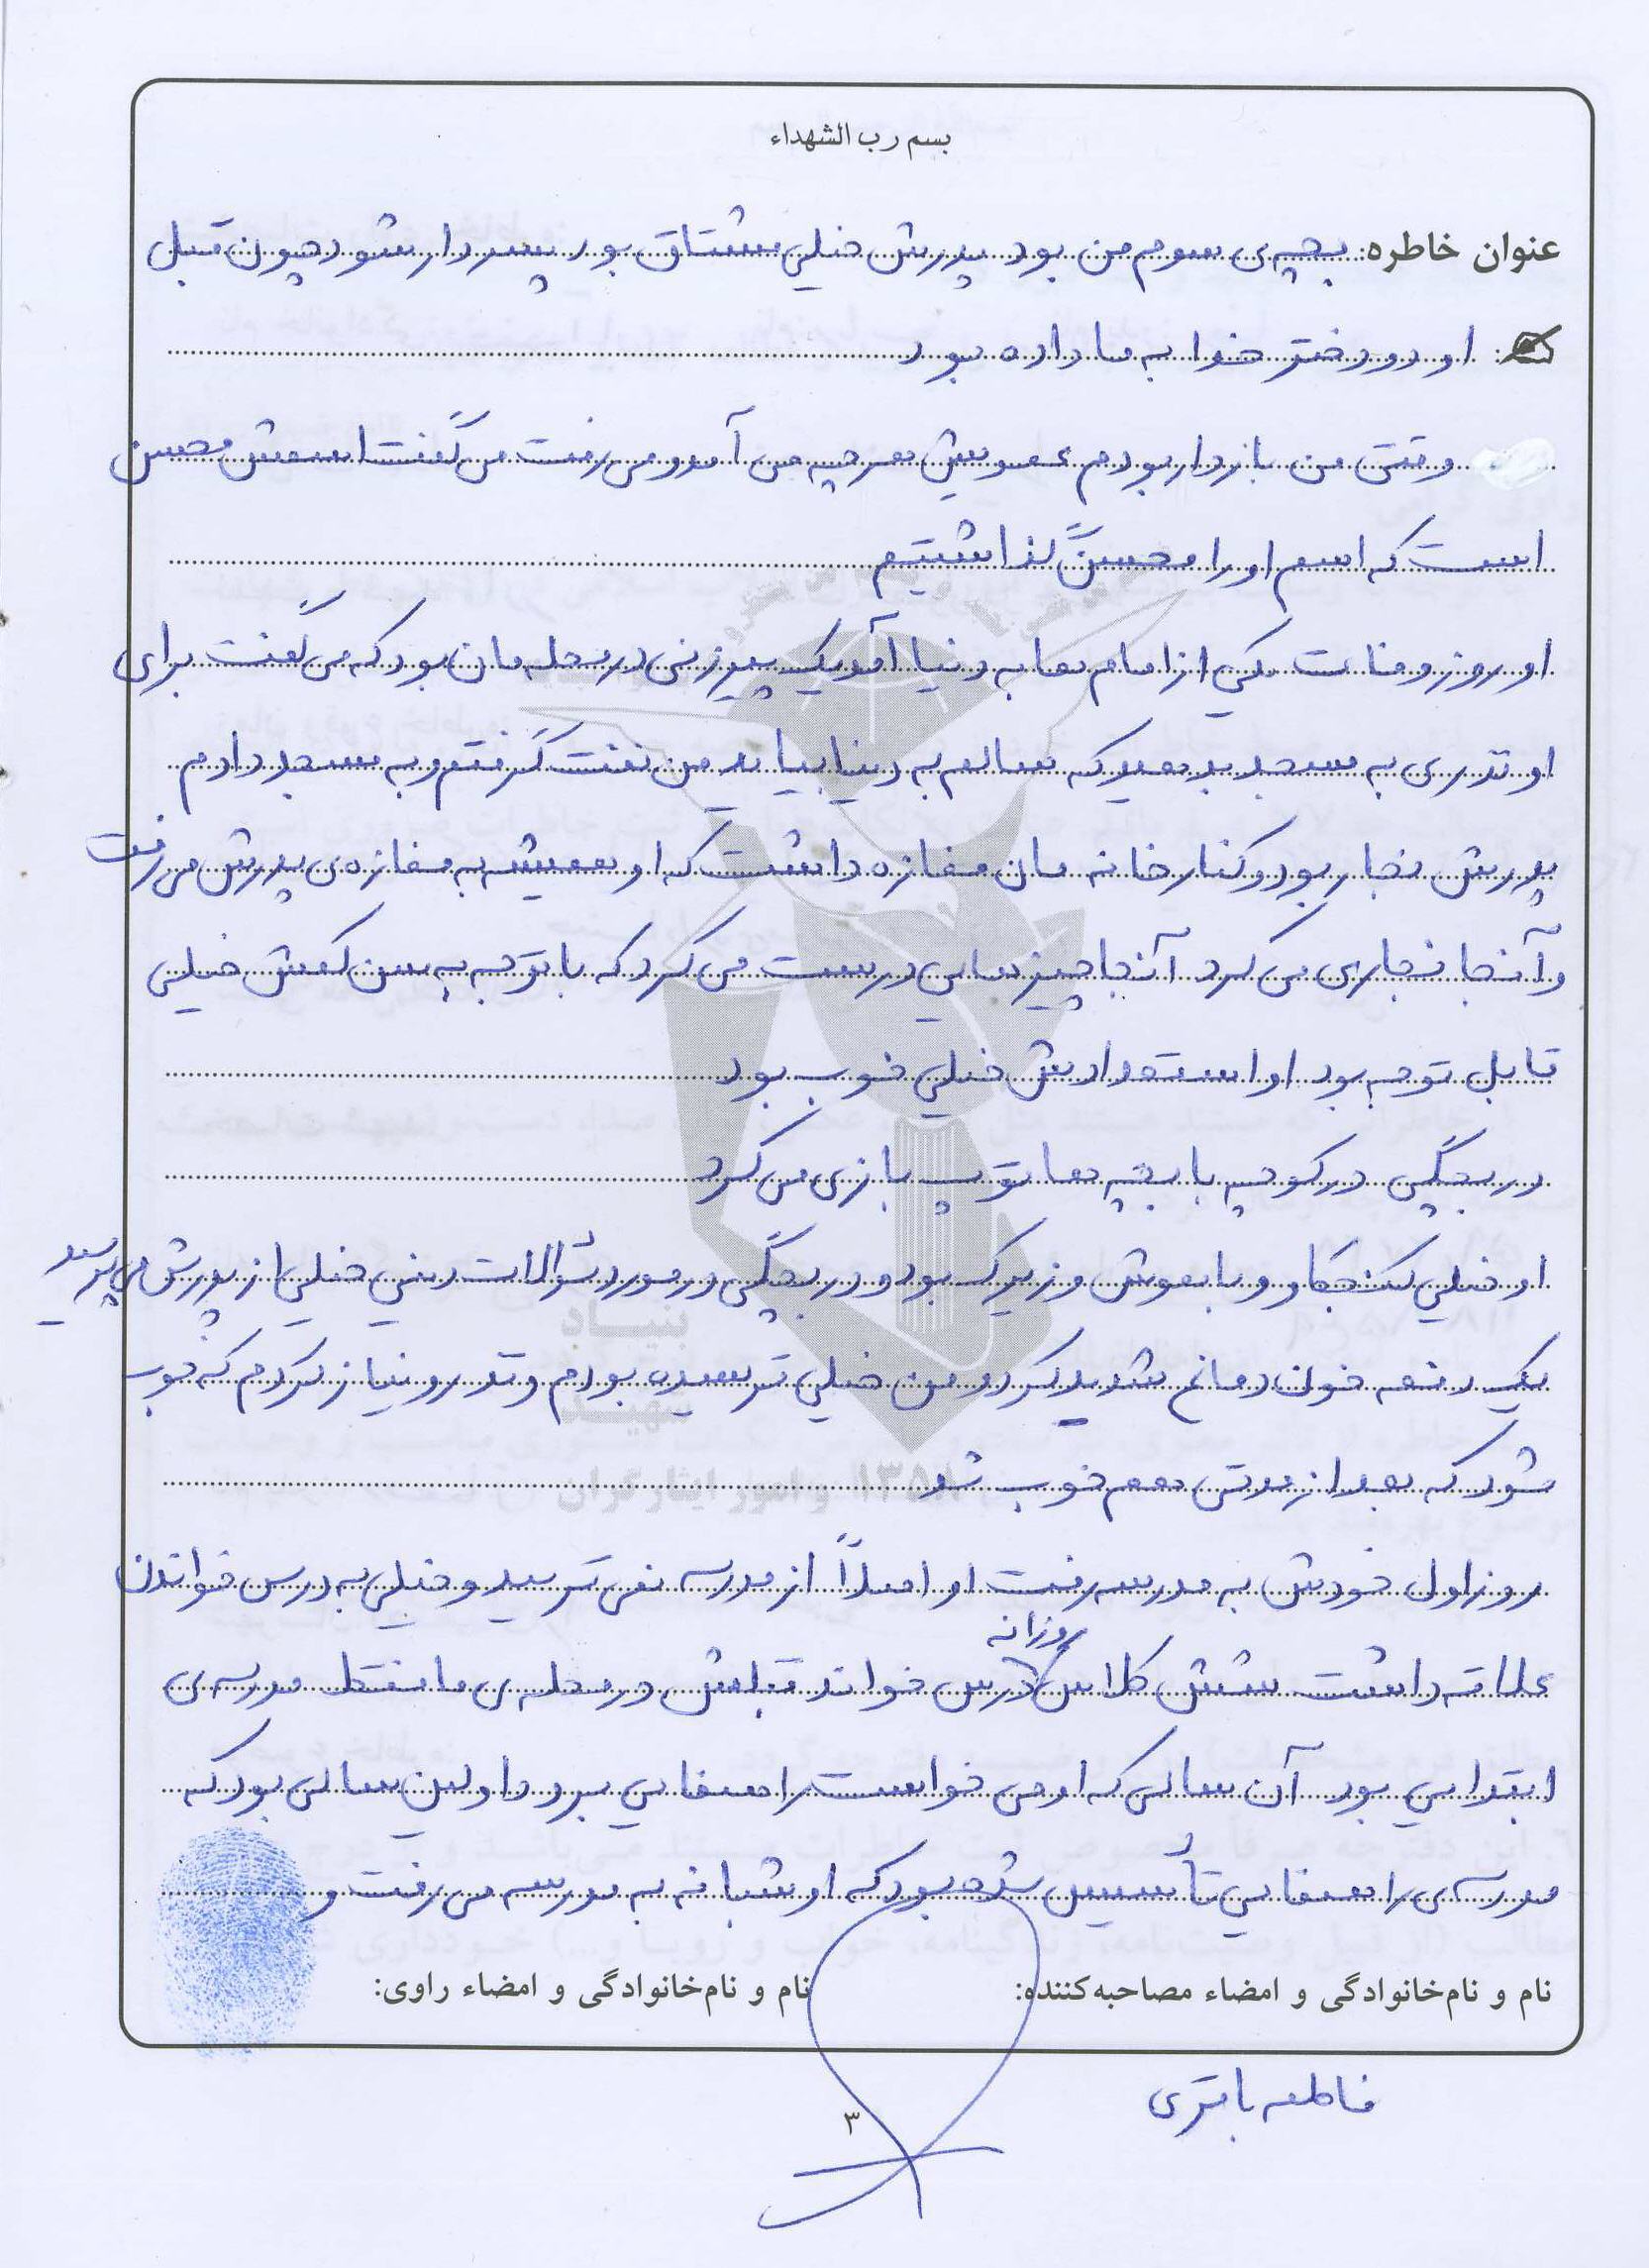 بسم رب الشهداء
عنوان خاطره: بچه ی سوم من بود پدرش خیلی مشتاق بود پسر دار شود چون قبل
او دو دختر خدا به ما داده بود
وقتی من باردار بودم عمویش هر چه می آمد و می رفت می گفت اسمش محسن
است که اسم او را محسن گذاشتیم
او روز وفات یکی از امام ها به دنیا آمد یک پیرزنی در محله مان بود که می گفت برای
او نذری به مسجد بدهید که سالم به دنیا بیاید من نفت گرفتم و به مسجد دادم
پدرش نجار بود و کنار خانه مان مغازه داشت که او همیشه به مغازه ی پدرش می رفت
و آنجا نجاری می کرد آنجا چیزهایی درست می کرد که با توجه به سن کمش خیلی
قابل توجه بود او استعدادش خیلی خوب بود
در بچگی در کوچه با بچه ها توپ بازی می کرد
او خیلی کنجکاو و با هوش و زیرک بود و در بچگی در مورد سؤالات دینی خیلی از پدرش می پرسید
یک دفعه خون دماغ شدید کرد و من خیلی ترسیده بودم و نذر و نیاز کردم که خوب
شود که بعد از مدتی هم خوب شد
روز اول خودش به مدرسه رفت او اصلاً از مدرسه نمی ترسید و خیلی به درس خواندن
علاقه داشت شش کلاس روزانه درس خواند قبلش در محله ی ما فقط مدرسه ی
ابتدایی بود آن سالی که او می خواست راهنمایی برود اولین سالی بود که
مدرسه ی راهنمایی تأسیس شده بود که او شبانه به مدرسه می رفت و
نام و نام‌خانوادگی و امضاء مصاحبه‌کننده:
نام و نام‌خانوادگی و امضاء راوی:
فاطمه باقری
۳
بنیاد
شهید
و امور ایثارگران
۱۳۵۸